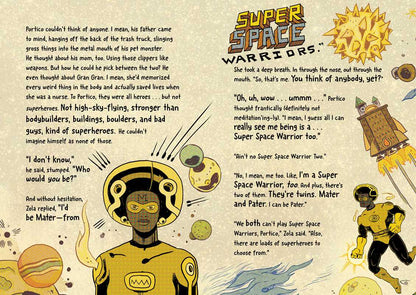 Portico couldn't think of anyone. I mean, his father came
to mind, hanging off the back of the trash truck, slinging
gross things into the metal mouth of his pet monster.
He thought about his mom, too. Using those clippers like
weapons. But how he could pick between the two? He
even thought about Gran Gran. I mean, she'd memorized
every weird thing in the body and actually saved lives when
she was a nurse. To Portico, they were all heroes . . . but not
superheroes. Not high-sky-flying, stronger than
bodybuilders, buildings, boulders, and bad
guys, kind of superheroes. He couldn't
imagine himself as none of those.
"I don't know,"
he said, stumped. "Who
would you be?"
And without hesitation,
Zola replied, "I'd
be Mater—from
SUPER
SPACE
WARRIORS."
She took a deep breath. In through the nose, out through the
mouth. "So, that's me. You think of anybody, yet?"
"Oh, uh, wow . . . ummm . . ." Portico
thought frantically (definitely not
meditation'ing-ly). "I mean, I guess all I can
really see me being is a . . .
Super Space Warrior too."
"Ain't no Super Space Warrior Two."
"No, I mean, me too. Like, I'm a Super
Space Warrior, too. And plus, there's
two of them. They're twins. Mater
and Pater. I can be Pater."
"We both can't play Super Space
Warriors, Portico," Zola said. "Also,
there are loads of superheroes to
choose from."